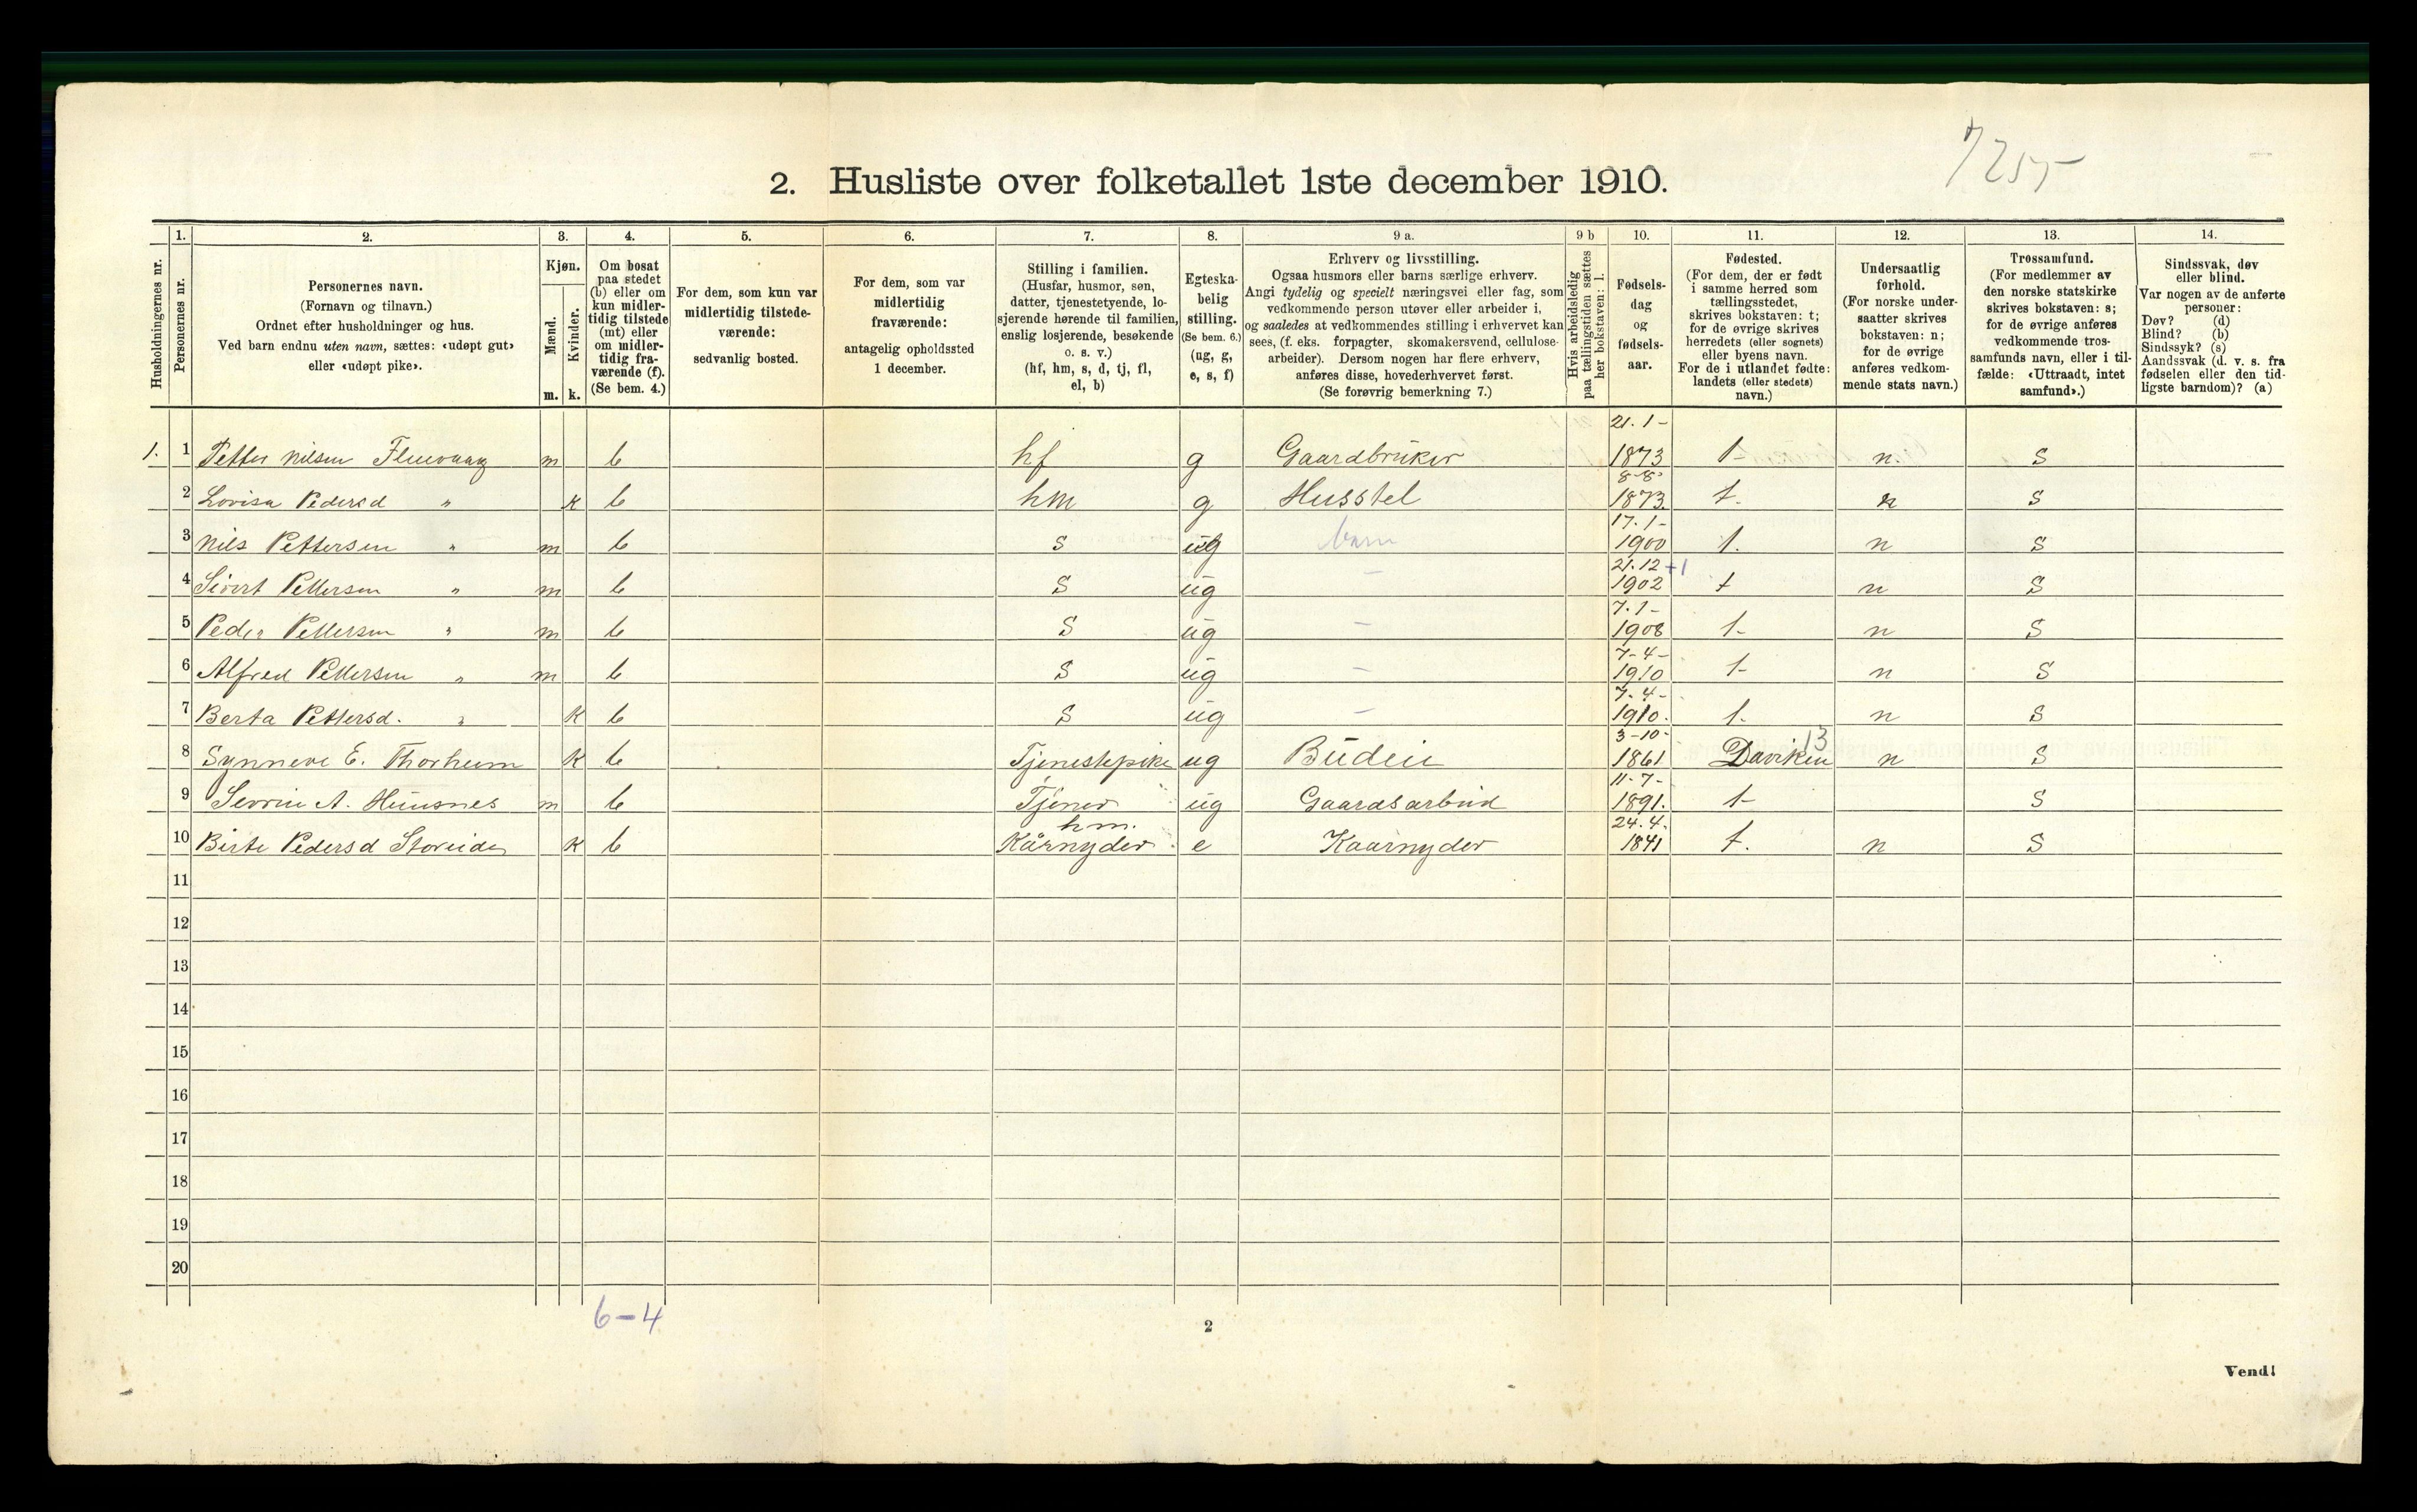 7255
2. Husliste over folketallet 1ste december 1910.
Husholdningernes nr.
1. Personernes nr.
2. Personernes navn.
(Fornavn og tilnavn.)
Ordnet efter husholdninger og hus.
Ved barn endnu uten navn, sættes: «udøpt gut»
eller «udøpt pike».
3. Kjøn.
Mænd. m.
Kvinder. k.
4. Om bosat
paa stedet
(b) eller om
kun midler-
tidig tilstede
(mt) eller
om midler-
tidig fra-
værende (f).
(Se bem. 4.)
5. For dem, som kun var
midlertidig tilstede-
værende:
sedvanlig bosted.
6. For dem, som var
midlertidig
fraværende:
antagelig opholdssted
1 december.
7. Stilling i familien.
(Husfar, husmor, søn,
datter, tjenestetyende, lo-
sjerende hørende til familien,
enslig losjerende, besøkende
o. s. v.)
(hf, hm, s, d, tj, fl,
el, b)
8. Egteska-
belig
stilling.
(Se bem. 6.)
(ug, g,
e, s, f)
9 a. Erhverv og livsstilling.
Ogsaa husmors eller barns særlige erhverv.
Angi tydelig og specielt næringsvei eller fag, som
vedkommende person utøver eller arbeider i,
og saaledes at vedkommendes stilling i erhvervet kan
sees, (f. eks. forpagter, skomakersvend, cellulose-
arbeider). Dersom nogen har flere erhverv,
anføres disse, hovederhvervet først.
(Se forøvrig bemerkning 7.)
9 b Hvis arbeidsledig
paa tællingstiden sættes
her bokstaven: l.
10. Fødsels-
dag
og
fødsels-
aar.
11. Fødested.
(For dem, der er født
i samme herred som
tællingsstedet,
skrives bokstaven: t;
for de øvrige skrives
herredets (eller sognets)
eller byens navn.
For de i utlandet fødte:
landets (eller stedets)
navn.)
12. Undersaatlig
forhold.
(For norske under-
saatter skrives
bokstaven: n;
for de øvrige
anføres vedkom-
mende stats navn.)
13. Trossamfund.
(For medlemmer av
den norske statskirke
skrives bokstaven: s;
for de øvrige anføres
vedkommende tros-
samfunds navn, eller i til-
fælde: «Uttraadt, intet
samfund».)
14. Sindssvak, døv
eller blind.
Var nogen av de anførte
personer:
Døv? (d)
Blind? (b)
Sindssyk? (s)
Aandssvak (d. v. s. fra
fødselen eller den tid-
ligste barndom)? (a)
1. 1 Petter Nilsen m b hf g Gaardbruker 21.1- 1873 t n. S
2 Lovisa Pedersd " k b hm g Husstel 8-8- 1873. t. n S
3 Nils Pettersen " m b S ug barn 17.1- 1900 t. n S
4 Sivert Pettersen " m b S ug - 21.12 +1 1902 t n S
5 Peder Pettersen " m b S ug - 7.1- 1908 t- n S
6 Alfred Pettersen " m b S ug - 7-4- 1910 t- n S
7 Berta Pettersd. " k b S ug - 7-4- 1910. t. n S
8 Synneve E. Thorheim k b Tjenestepike ug Budeie 3-10- 1861 Daviken 13 n S
9 A. Husnes m b Tjener ug Gaardsarbeid 11-7- 1891. t- S
10 Birte Pedersd k b hm. Kårnyder e Kaarnyder 24.4. 1841 t. n S
11
12
13
14
15
16
17
18
19
20
6-4
2
Vend!